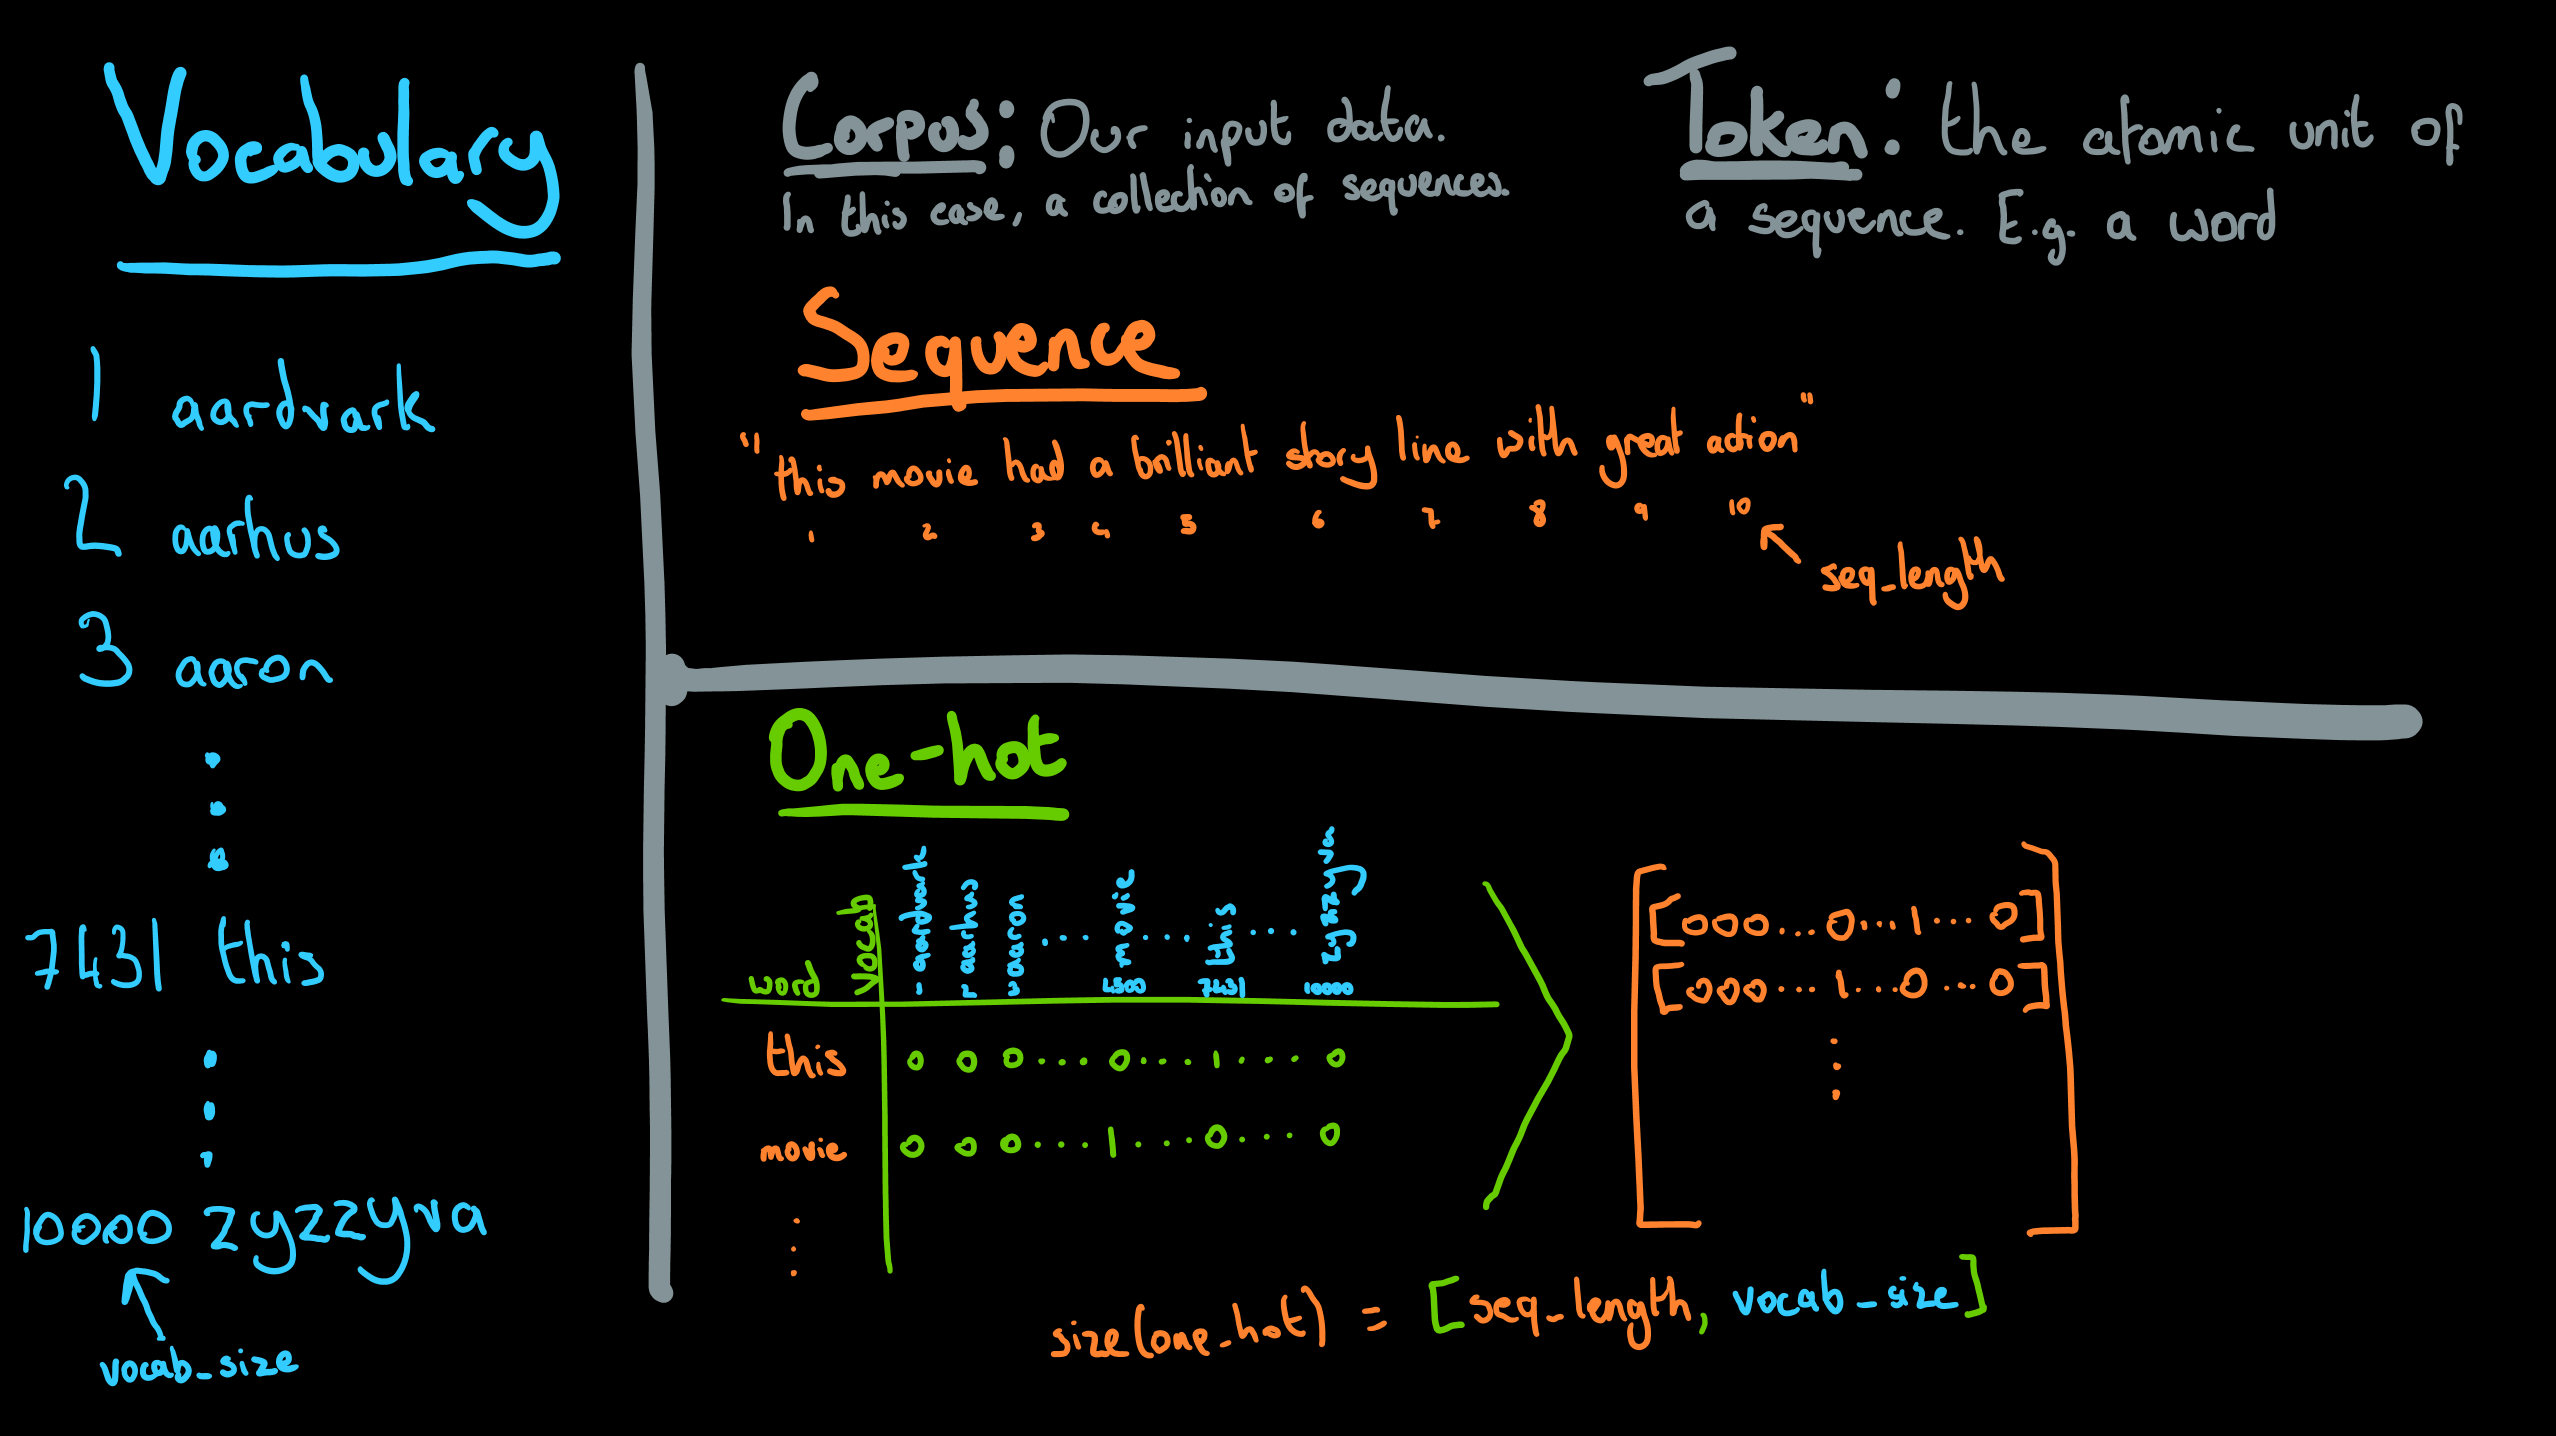 Vocabulary
1 aardvark
2 aarhus
3 aaron
7431 this
10000 zyzzyva
vocab_size
Corpus: Our input data.
In this case, a collection of sequences.
Token: the atomic unit of
a sequence. E.g. a word
Sequence
"this movie had a brilliant story line with great action"
1 2 3 4 5 6 7 8 9 10
seq_length
One-hot
word vocab
1 aardvark
2 aarhus
3 aaron
....
4500 movie
...
7431 this
...
10000 zyzzyva
this 0 0 0 ... 0 ... 1 .... 0
movie 0 0 0 ... 1 ... 0 .... 0
[000...0...1...0]
[000...1...0...0]
size(one_hot) = [seq_length, vocab_size]